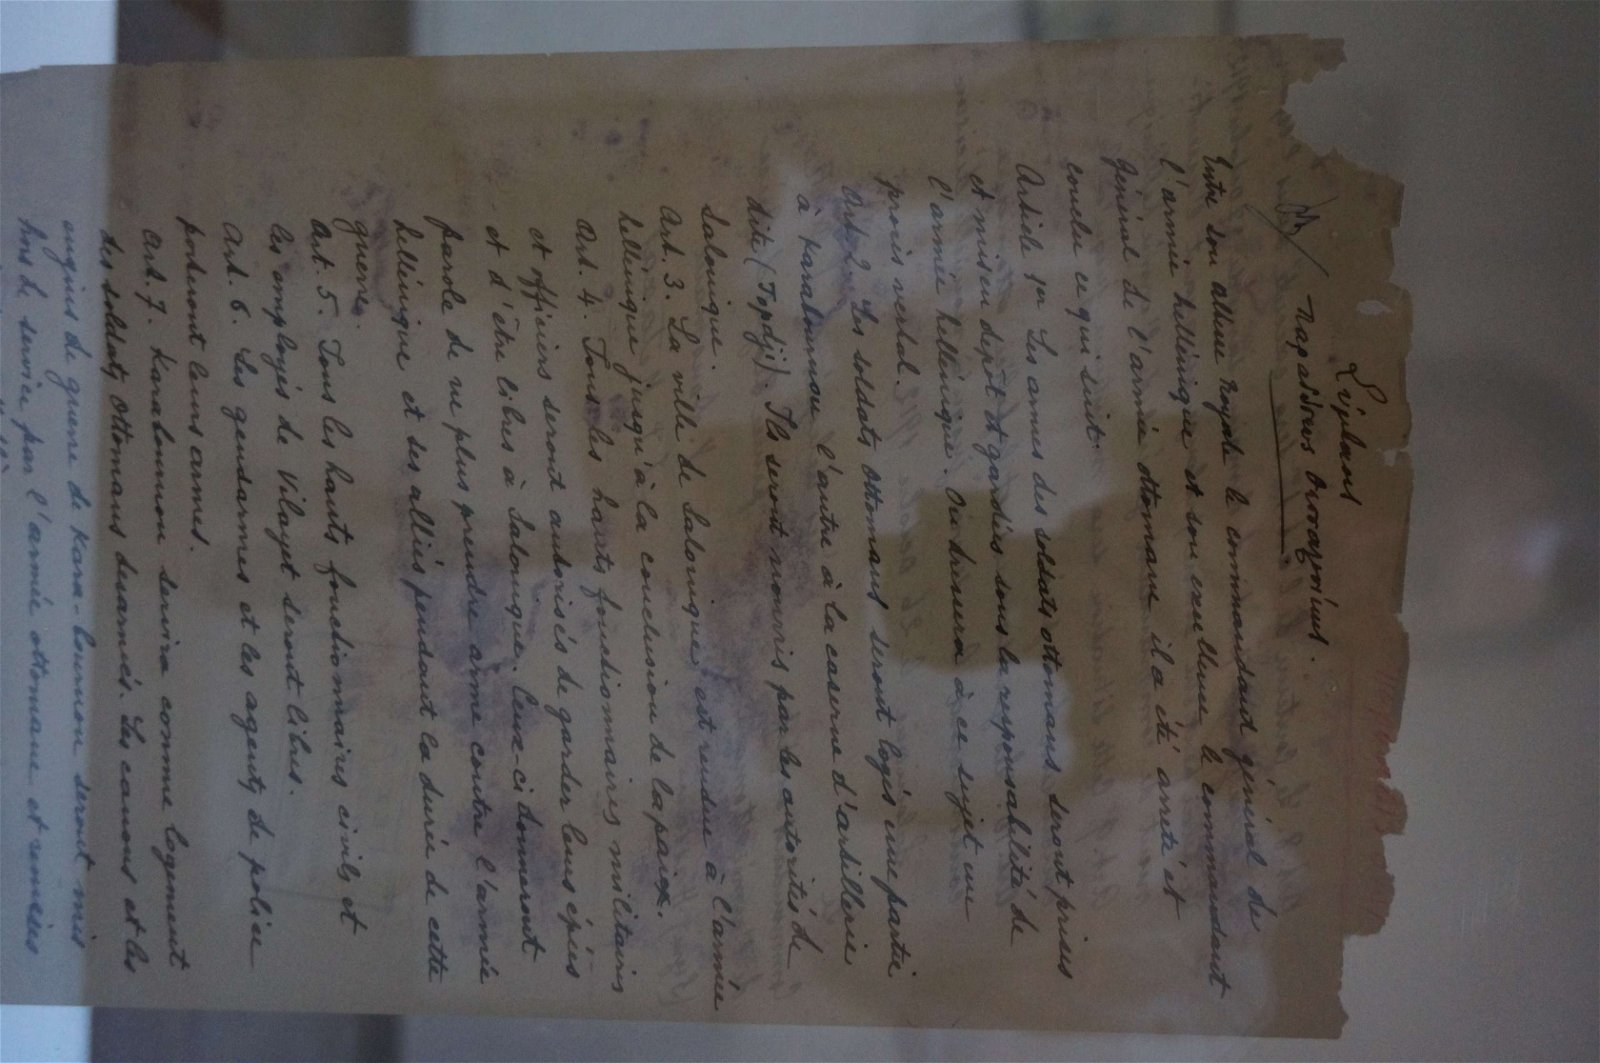 Παραδόσεως Θεσσαλονίκης.
Entre son altesse Royale le commandant général de
l'armée hellénique et son excellence le commandant
général de l'armée ottomane il a été arreté et
conclu ce qui suit.
Article 1er Les armes des soldats ottomans seront prises
et mises en depôt et gardées sous la responsabilité de
l'armée hellénique. On dressera à ce sujet un
procès verbal.
Art. 2. Les soldats Ottomans seront logés une partie
à Karabournou l'autre à la caserne d'artillerie
dite (Topdji). Ils seront nourris par les autorités de
Salonique.
Art. 3. La ville de Salonique est rendue à l'armée
hellénique jusqu'à la conclusion de la paix.
Art. 4. Tous les hauts fonctionnaires militaires
et officiers seront autorisés de garder leurs épées
et d'être libres à Salonique. Ceux-ci donneront
parole de ne plus prendre arme contre l'armée
hellénique et ses alliés pendant la durée de cette
guerre.
Art. 5. Tous les hauts fonctionnaires civils et
les employés de Vilayet seront libres.
Art. 6. Les gendarmes et les agents de police
porteront leurs armes.
Art. 7. Karabournou servira comme logement
des soldats Ottomans desarmés. Les canons et les
engins de guerre de Kara-bournou seront mis
hors de service par l'armée ottomane et remises